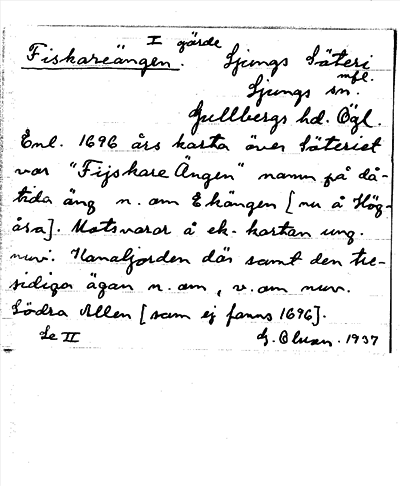 I gärde
Fiskareängen. Ljungs Säteri
mfl.
Ljungs sn.
Gullbergs hd. Ögl.
Enl. 1696 års karta över Säteriet
var "Fijskare Ängen" namn på då-
tida äng n. om Ekängen [nu å Hög-
åsa]. Motsvarar å ek-kartan ung.
nuv. Kanaljorden där samt den tre-
sidiga ägan n. om, v. om nuv.
Södra Allen [som ej fanns 1696].
Se II G. Olsson. 1937